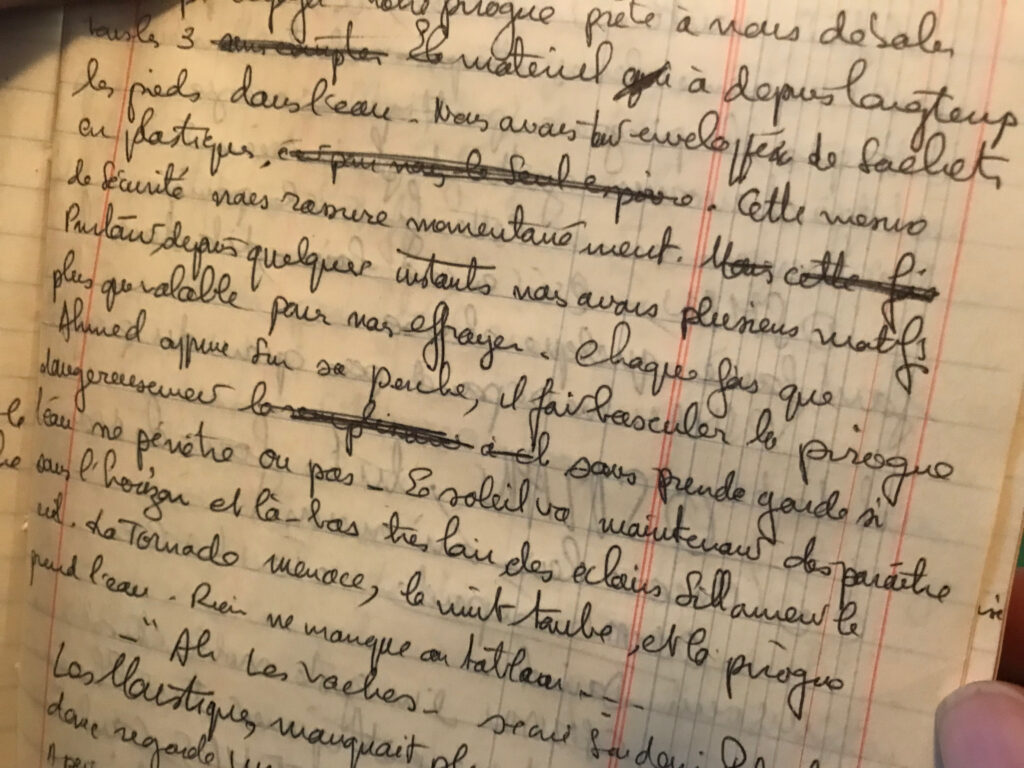 pirogue prête à nous désaler
tous les 3 Le matériel à depuis longtemp
les pieds dans l'eau. Nous avons tout enveloppée de Sachets
en plastiques, le seul espoire. Cette mesure
de sécurité nous rassure momentané ment. Mais cette fois
Pourtant, depuis quelques instants nous avons plusieurs motifs
plus que valable pour nous effrayer. Chaque fois que
Ahmed appuie sur sa perche, il fait basculer la pirogue
dangereusement la sans prende garde si
l'eau ne pénètre ou pas - Le soleil va maintenant disparaître
sous l'horizon et là-bas très loin, des éclairs Sillonnent le
La Tornade menace, la nuit tombe, et la pirogue
prend l'eau. Rien ne manque au tableau ---
-" Ah Les Vaches -
Les Moustiques, manquait
donc regarde